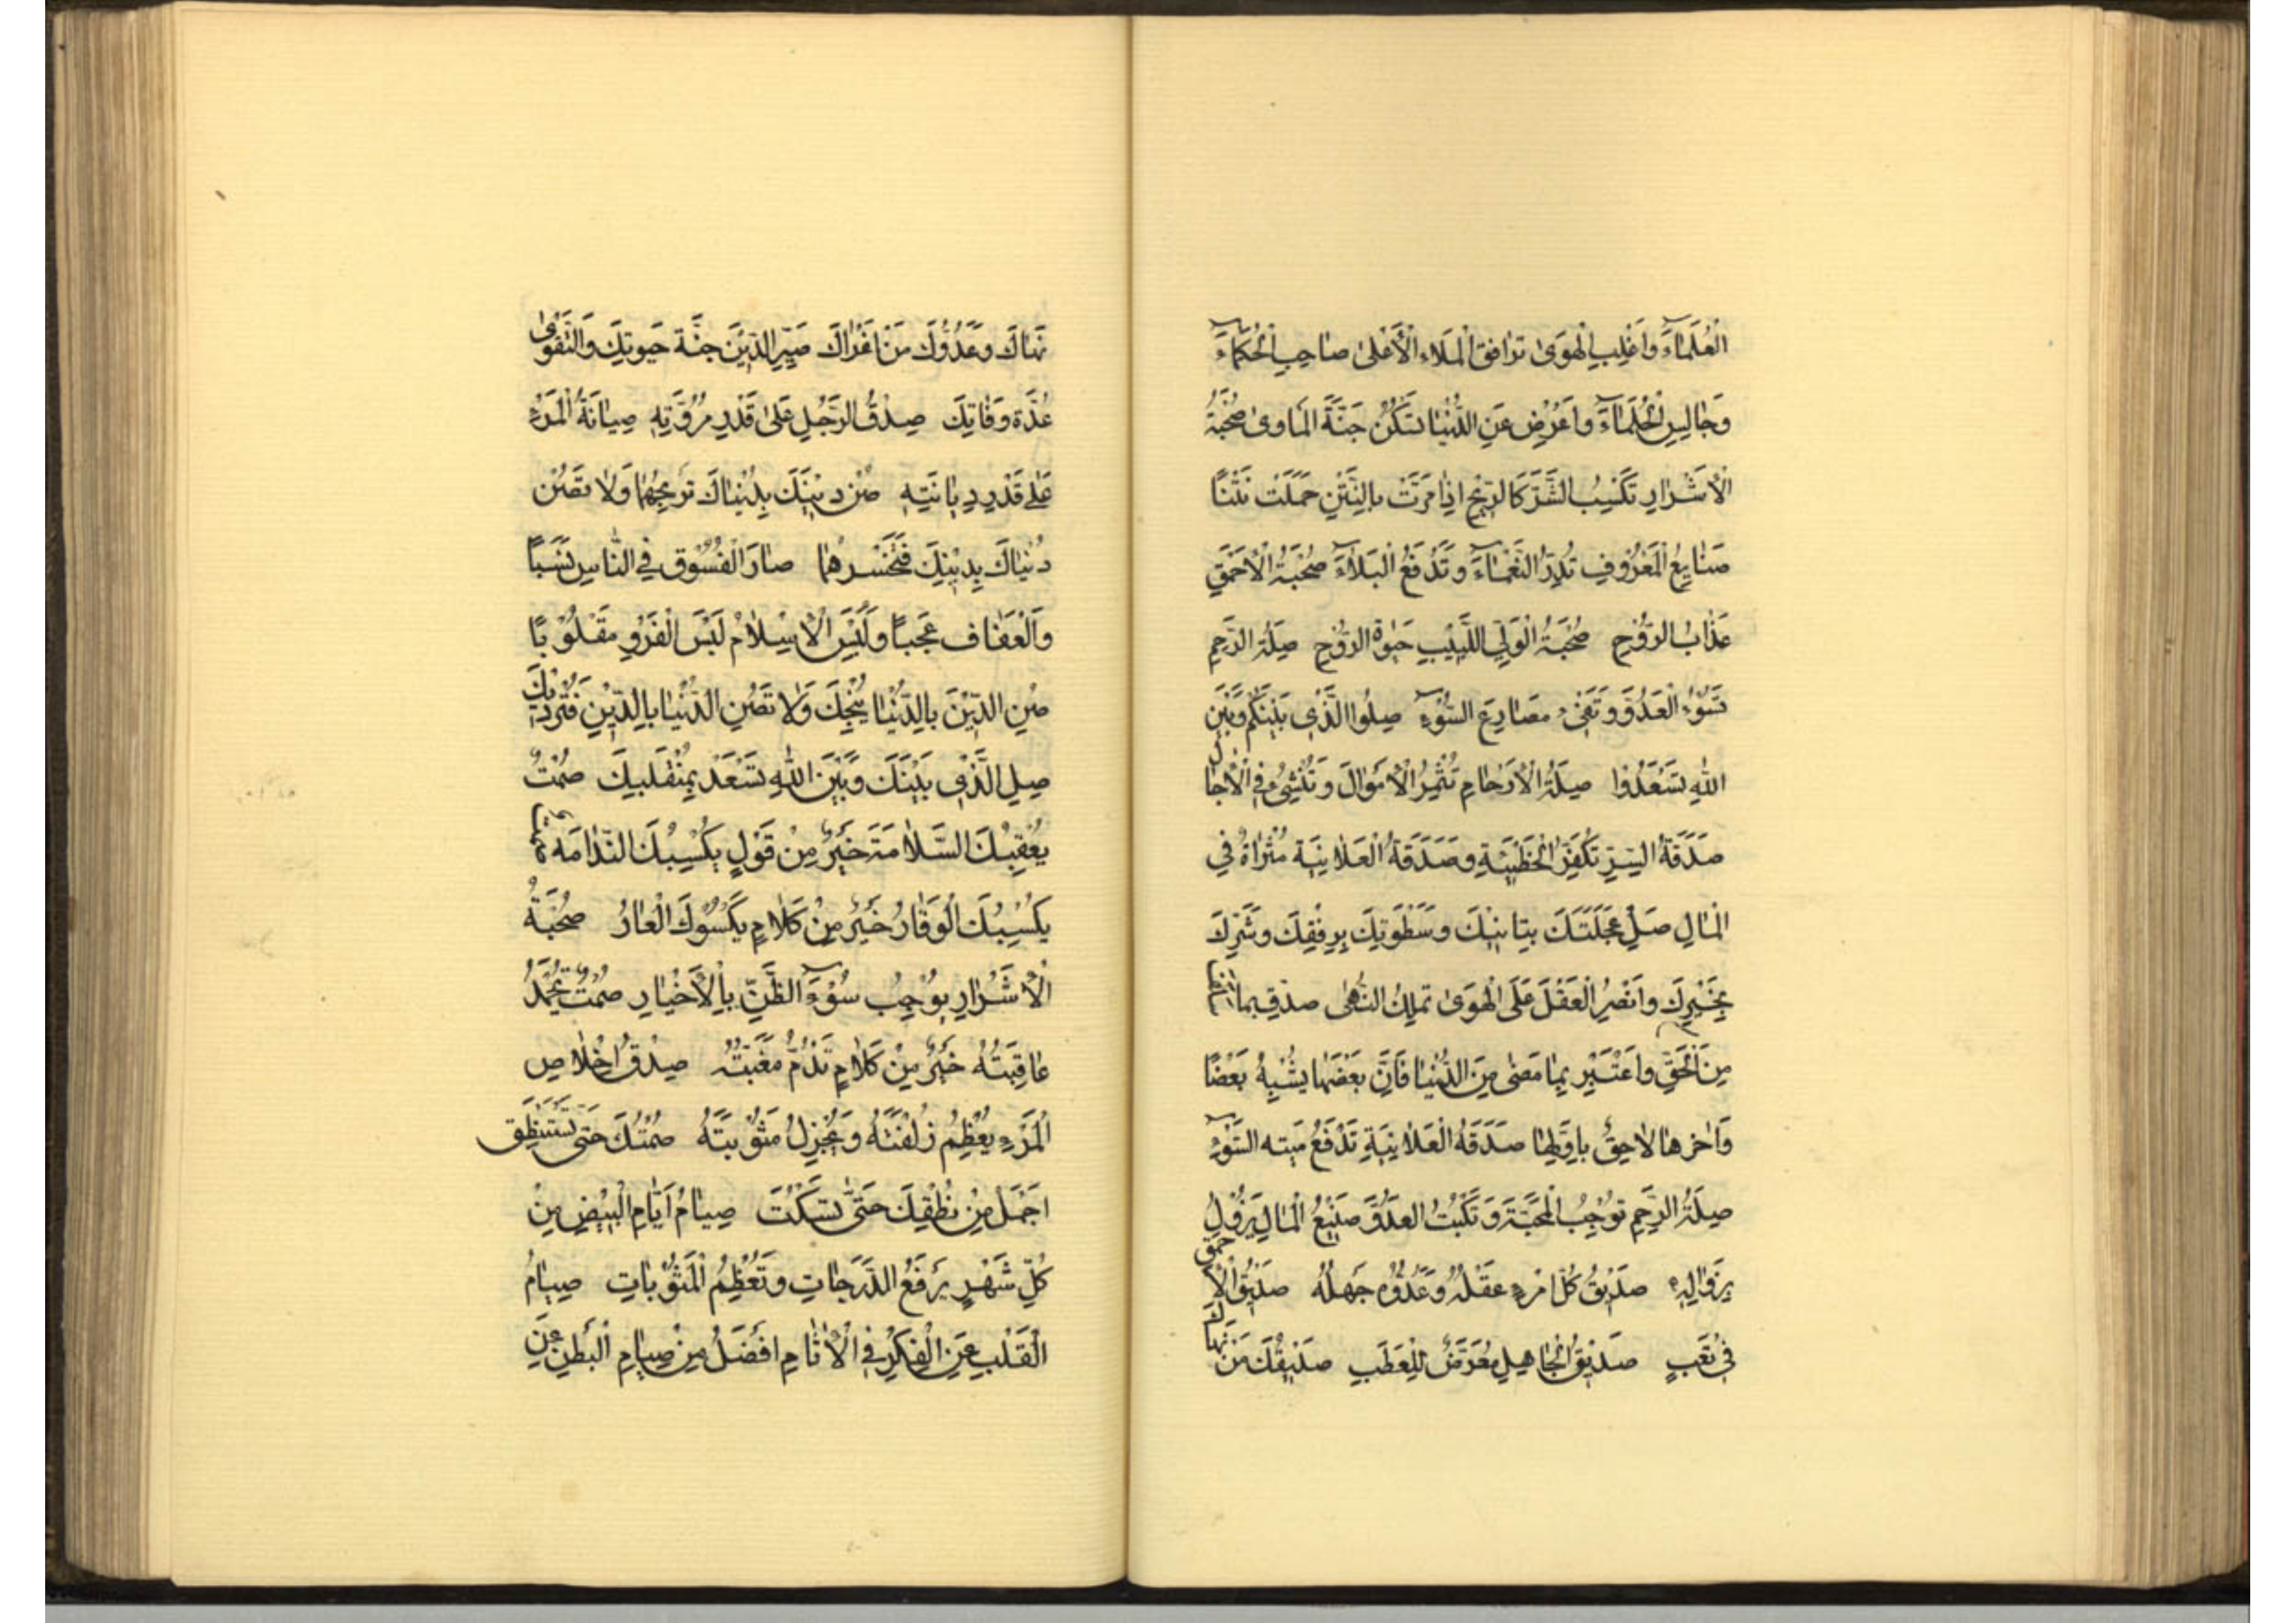 الْعُلَمَاءَ وَاغْلِبِ الْهَوَىٰ تُرافِقِ الْمَلَاءِ الْأَعْلىٰ صاحِبِ الْحُكَمَاءَ
وَجٰالِسِ الْحُلَمَاءَ وَاَعْرِضْ عَنِ الدُّنْيٰا تَسْكُنْ جَنَّةَ الْمَاوىٰ صُحْبَةُ
الْاَشْرٰارِ تَكْسِبُ الشَّرَّ كَالرِّيْحِ اِذٰا مَرَّتْ بِالنَّتِنِ حَمَلَتْ نَتْنًا
صَنٰايِعُ الْمَعْرُوفِ تُدِرُّ النَّعْمَاءَ وَتَدْفَعُ الْبَلَاءَ صُحْبَةُ الْاَحْمَقِ
عَذٰابُ الرُّوْحِ صُحْبَةُ الْوَلِيِّ اللَّبِيْبِ حَيٰوةُ الرُّوْحِ صِلَةُ الرَّحِمِ
تَسُوْءُ الْعَدُوَّ وَتَقِىْ مَصٰارِعَ السُّوْءِ صِلُوا الَّذِيْ بَيْنَكُمْ وَبَيْنَ
اللهِ تَسْعَدُوْا صِلَةُ الْاَرْحٰامِ تُثْمِرُ الْاَمْوٰالَ وَتُنْسِئُ فِي الْاٰجٰالِ
صَدَقَةُ السِّرِّ تُكَفِّرُ الْخَطِيْئَةِ وَصَدَقَةُ الْعَلٰانِيَةِ مَثْرٰاةٌ فِي
الْمٰالِ صَلِ عَجَلَتَكَ بِتَاَنِّيْكَ وَسَطْوَتِكَ بِرِفْقِكَ وَشَرِّكَ
بِخَيْرِكَ وَانْصُرِ الْعَقْلَ عَلَى الْهَوىٰ تَمْلِكُ النُّهىٰ صَدِّقْ بِمٰا
مِنَ الْحَقِّ وَاعْتَبِرْ بِمٰا مَضىٰ مِنَ الدُّنْيٰا فَاِنَّ بَعْضَهٰا يُشْبِهُ بَعْضًا
وَاٰخِرُهٰا لٰاحِقٌ بِاَوَّلِهٰا صَدَقَةُ الْعَلٰانِيَةِ تَدْفَعُ مَيْتَةَ السُّوْءِ
صِلَةُ الرَّحِمِ تُوْجِبُ الْمَحَبَّةَ وَتَكْبِتُ الْعَدُوَّ صَنِيْعُ الْمٰالِ يَزُوْلُ
بِزَوٰالِهِ صَدِيْقُ كُلِّ امْرِءٍ عَقْلُهُ وَعَدُوُّهُ جَهْلُهُ صَدِيْقُ الْاَحْمَقِ
فِيْ تَعَبٍ صَدِيْقُ الْجٰاهِلِ مُعَرَّضٌ لِلْعَطَبِ صَدِيْقُكَ مَنْ نَهٰاكَ
نَهٰاكَ وَعَدُوُّكَ مَنْ اَغْرٰاكَ صَيِّرِ الدِّيْنَ جُنَّةَ حَيٰوتِكَ وَالتَّقْوىٰ
عُدَّةَ وَفٰاتِكَ صِدْقُ الرَّجُلِ عَلىٰ قَدْرِ مُرُوَّتِهِ صِيٰانَةُ الْمَرْءِ
عَلىٰ قَدْرِ دِيٰانَتِهِ صُنْ دِيْنَكَ بِدُنْيٰاكَ تَرْبَحْهُمٰا وَلٰا تَصُنْ
دُنْيٰاكَ بِدِيْنِكَ فَتَخْسَرْهُمٰا صٰارَ الْفُسُوْقُ فِي النّٰاسِ نَسَبًا
وَالْعَفٰافُ عَجَبًا وَلُبِسَ الْاِسْلٰامُ لُبْسَ الْفَرْوِ مَقْلُوْبًا
صُنِ الدِّيْنَ بِالدُّنْيٰا يُنْجِكَ وَلٰا تَصُنِ الدُّنْيٰا بِالدِّيْنِ فَتُرْدِيْكَ
صِلِ الَّذِيْ بَيْنَكَ وَبَيْنَ اللهِ تَسْعَدْ بِمُنْقَلَبِكَ صَمْتٌ
يُعْقِبُكَ السَّلٰامَةَ خَيْرٌ مِنْ قَوْلٍ يُكْسِبُكَ النَّدٰامَه
يُكْسِبُكَ الْوَقٰارُ خَيْرٌ مِنْ كَلٰامٍ يَكْسُوْكَ الْعٰارُ صُحْبَةُ
الْاَشْرٰارِ يُوْجِبُ سُوْءَ الظَّنِّ بِالْاَخْيٰارِ صَمْتٌ تُحْمَدُ
عٰاقِبَتُهُ خَيْرٌ مِنْ كَلٰامٍ تُذَمُّ مَغَبَّتُهُ صِدْقُ اِخْلٰاصِ
الْمَرْءِ يُعْظِمُ زُلْفَتَهُ وَيُجْزِلُ مَثُوْبَتَهُ صَمْتُكَ حَتّىٰ تُسْتَنْطَقَ
اَجْمَلُ مِنْ نُطْقِكَ حَتّىٰ تُسْكَتَ صِيٰامُ اَيّٰامِ الْبِيْضِ مِنْ
كُلِّ شَهْرٍ يَرْفَعُ الدَّرَجٰاتِ وَتُعْظِمُ الْمَثُوْبٰاتِ صِيٰامُ
الْقَلْبِ عَنِ الْفِكْرِ فِي الْاٰثٰامِ اَفْضَلُ مِنْ صِيٰامِ الْبَطْنِ عَنِ